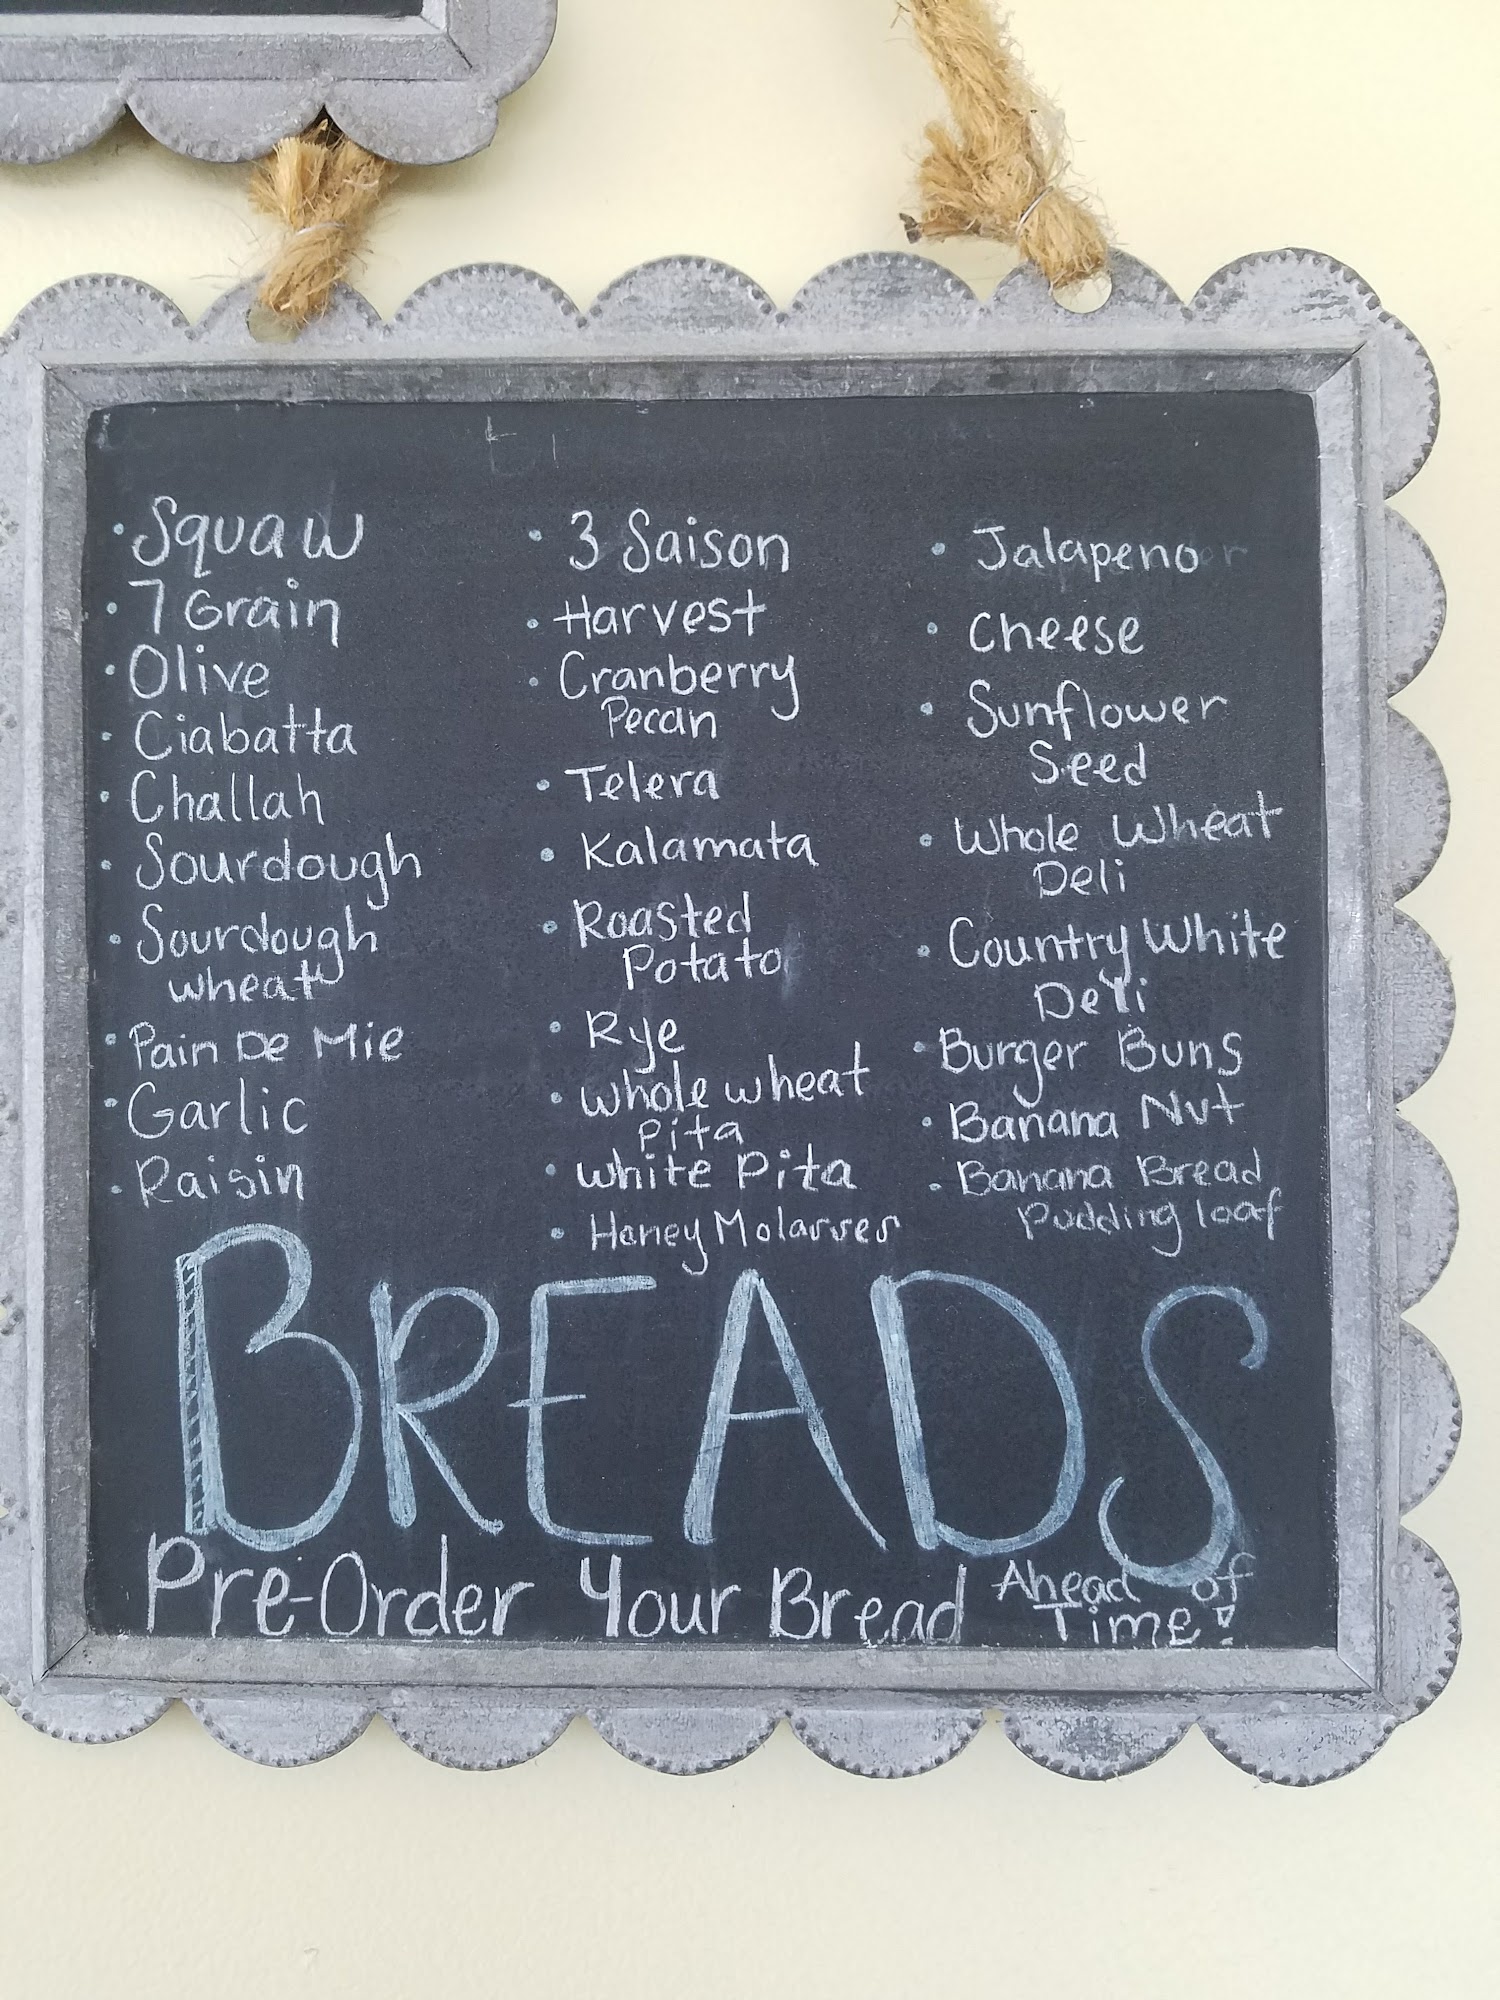 • Squaw
• 7 Grain
• Olive
• Ciabatta
• Challah
• Sourdough
• Sourdough
wheat
• Pain De Mie
• Garlic
• Raisin
• 3 Saison
• Harvest
• Cranberry
Pecan
• Telera
• Kalamata
• Roasted
Potato
• Rye
• whole wheat
pita
• white pita
• Honey Molasses
• Jalapeno
• Cheese
• Sunflower
Seed
• Whole Wheat
Deli
• Country White
Deli
• Burger Buns
• Banana Nut
• Banana Bread
pudding loaf
BREADS
Pre-Order Your Bread Ahead of
Time!